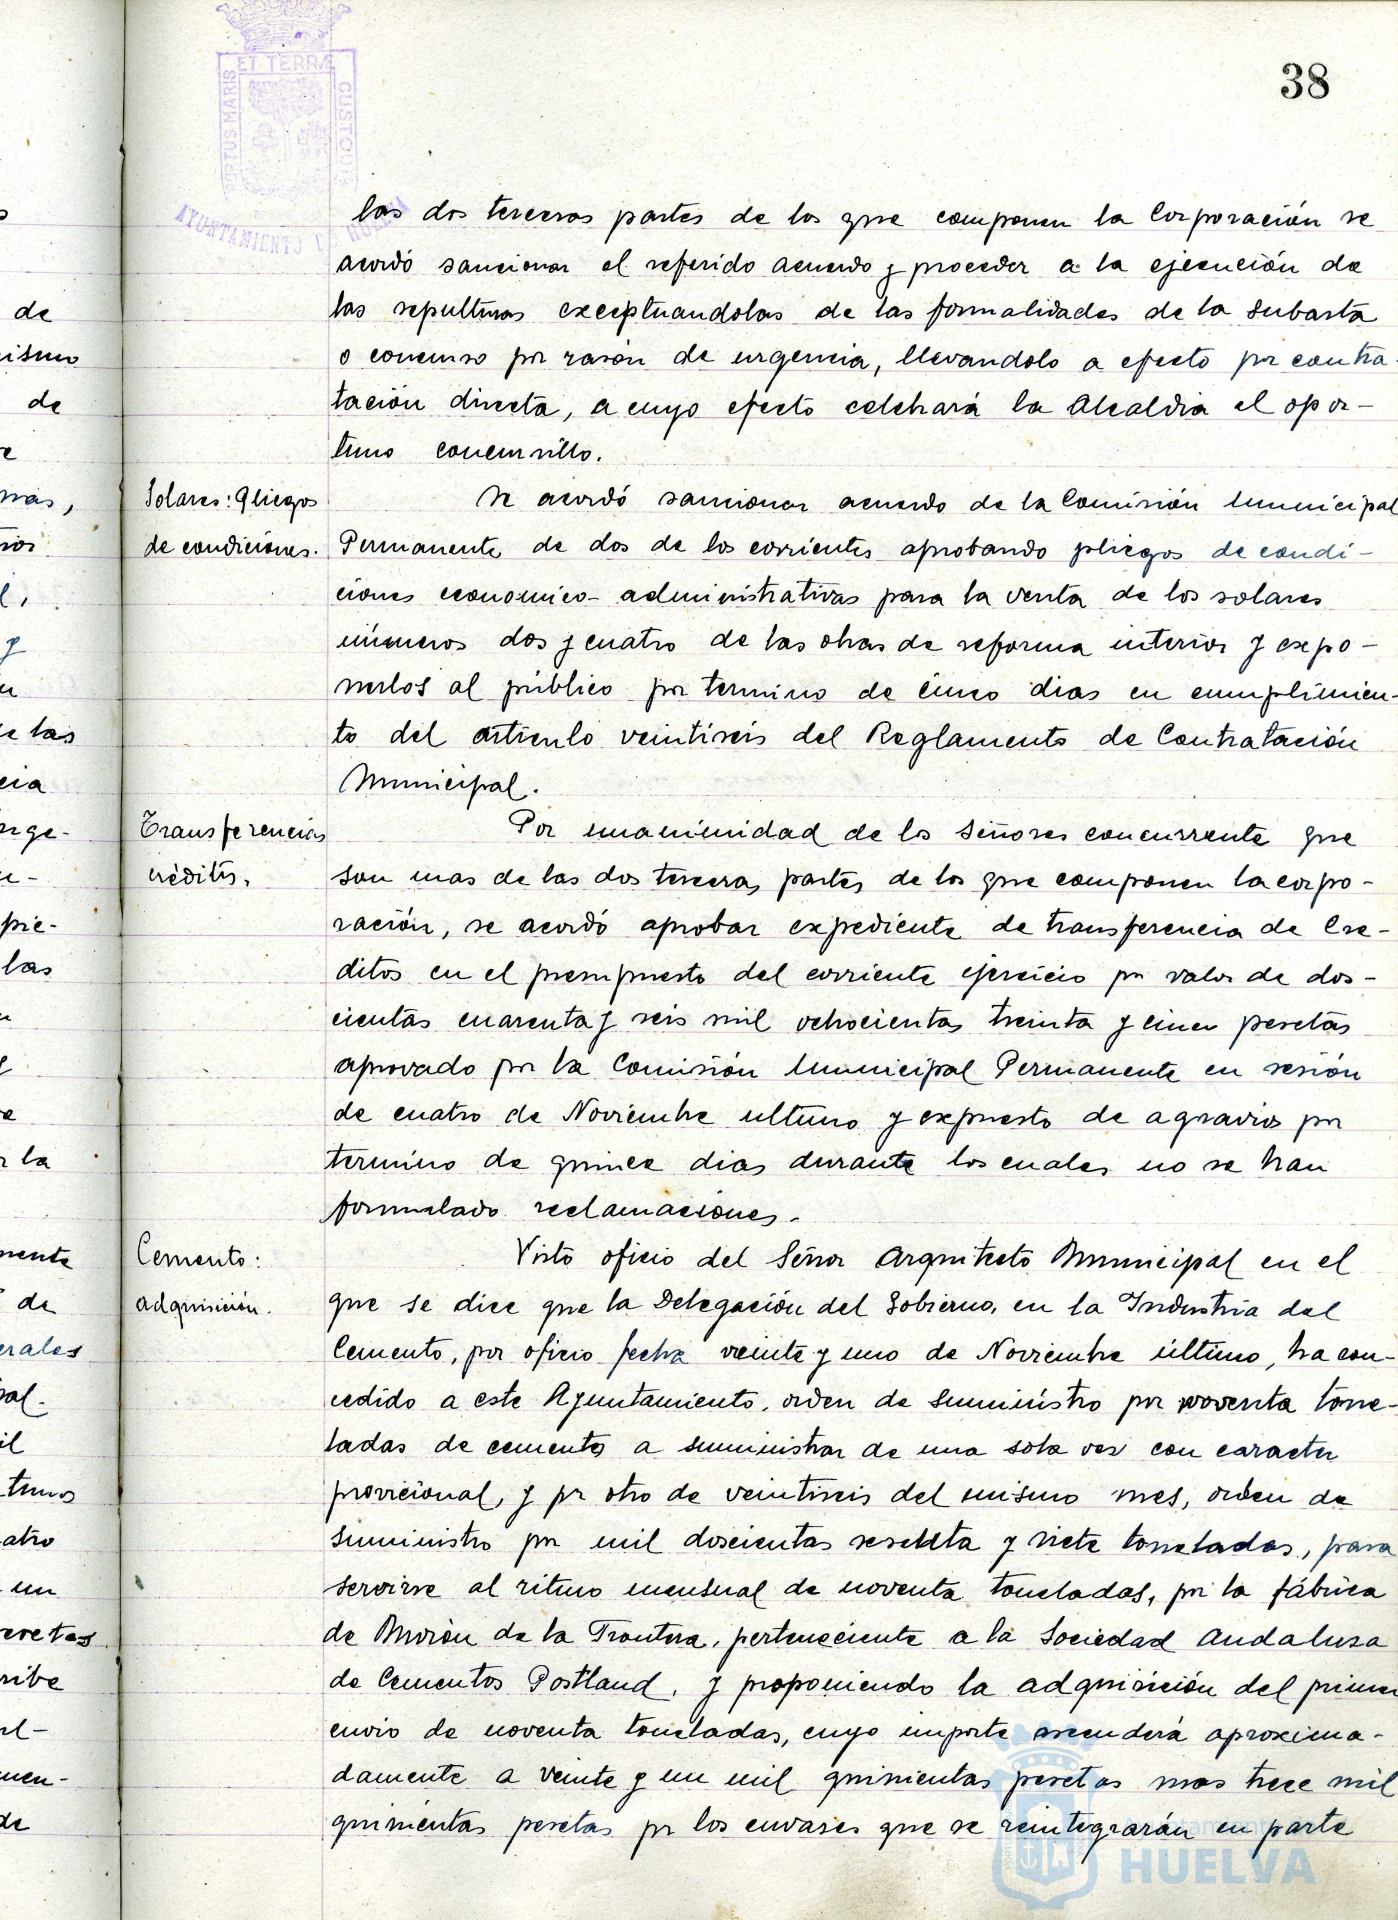 38
PORTUS MARIS ET TERRÆ CUSTODIA
AYUNTAMIENTO DE HUELVA
las dos terceras partes de los que componen la Corporación se
acordó sancionar el referido acuerdo y proceder a la ejecución de
las sepulturas exceptuandolas de las formalidades de la subasta
o concurso por rasón de urgencia, llevandolo a efecto por contra-
tación directa, a cuyo efecto celebrará la Alcaldia el opor-
tuno concursillo.
Solares: Pliegos
de condiciones.
Se acordó sancionar acuerdo de la Comisión Municipal
Permanente de dos de los corrientes aprobando pliegos de condi-
ciones economico-administrativas para la venta de los solares
números dos y cuatro de las obras de reforma interior y expo-
nerlos al público por termino de cinco dias en cumplimien-
to del articulo veintiseis del Reglamento de Contratación
Municipal.
Transferencias
créditos.
Por unanimidad de los señores concurrente que
son mas de las dos terceras partes de los que componen la corpo-
ración, se acordó aprobar expediente de transferencia de Cre-
ditos en el presupuesto del corriente ejercicio por valor de dos-
cientas cuarenta y seis mil ochocientas treinta y cinco pesetas
aprovado por la Comisión Municipal Permanente en sesión
de cuatro de Noviembre ultimo y expuesto de agravios por
termino de quince dias durante los cuales no se han
formulado reclamaciones.
Cemento:
adquisición.
Visto oficio del Señor Arquitecto Municipal en el
que se dice que la Delegación del Gobierno, en la Industria del
Cemento, por oficio fecha veinte y uno de Noviembre último, ha con-
cedido a este Ayuntamiento, orden de suministro por noventa tone-
ladas de cemento a suministrar de una sola vez con caracter
provicional, y por otro de veintiseis del mismo mes, orden de
suministro por mil doscientas sesenta y siete toneladas, para
servirse al ritmo mensual de noventa toneladas, por la fábrica
de Morón de la Frontera, perteneciente a la Sociedad Andalusa
de Cementos Portland, y proponiendo la adquisición del primer
envio de noventa toneladas, cuyo importe ascenderá aproxima-
damente a veinte y un mil quinientas pesetas mas trece mil
quinientas pesetas por los envases que se reintegrarán en parte
HUELVA